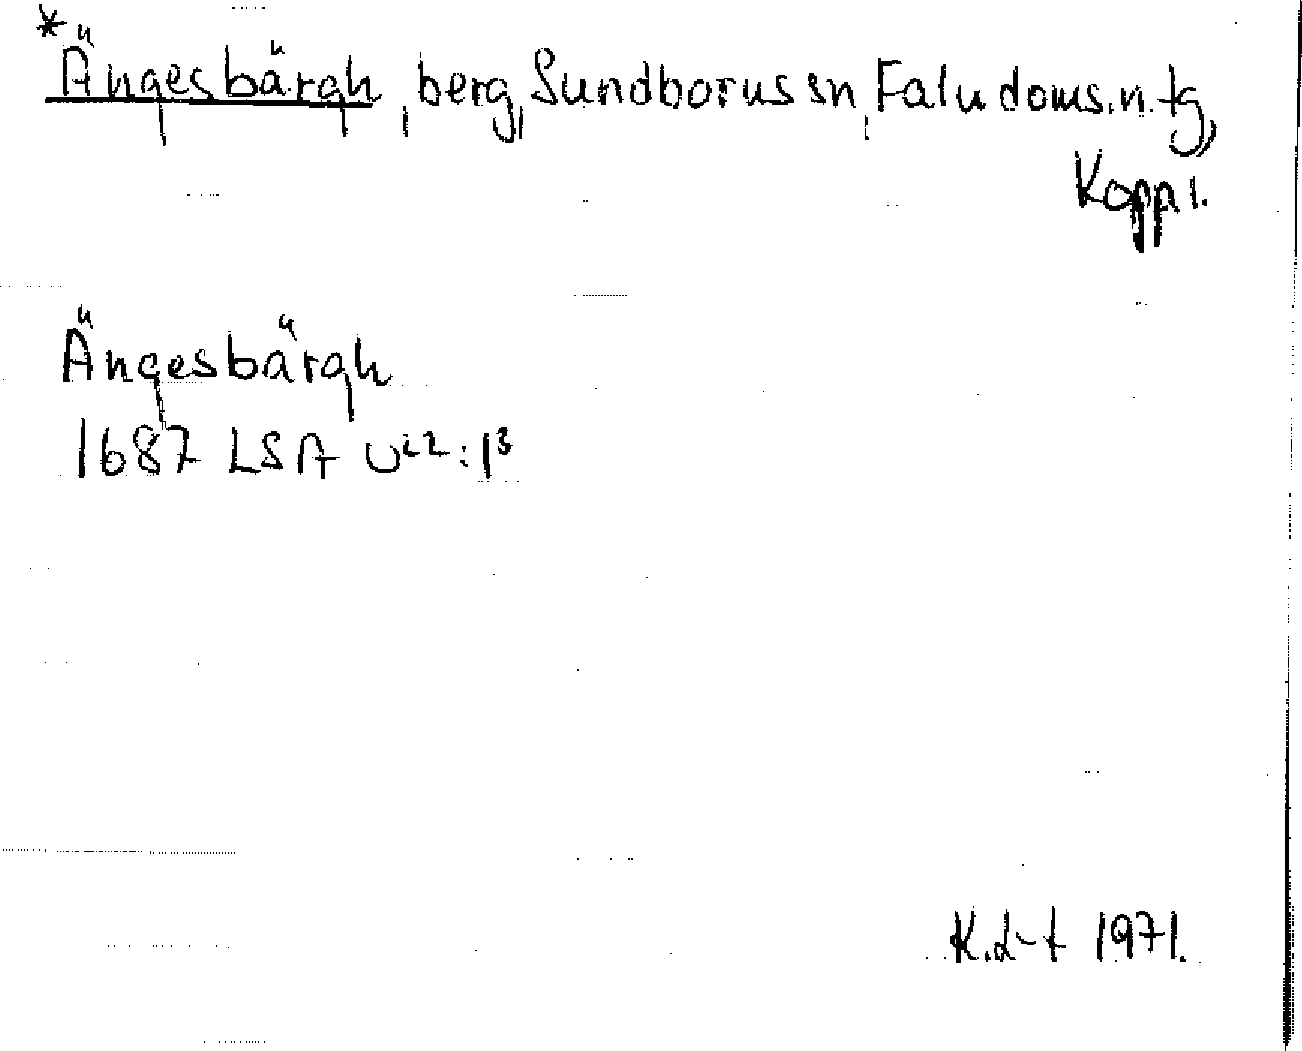 *Ängesbärgh, berg, Sundborns sn, Falu doms. n. tg,
Kopp l.
Ängesbärgh
1687 LSA U22:1³
K.L-t 1971.